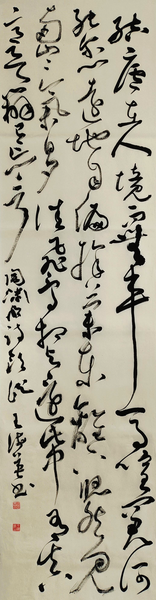 結廬在人境而無車馬喧問君何
能爾心遠地自偏採菊東籬下悠然見
南山山氣日夕佳飛鳥相與還此中有真
意欲辨已忘言
陶淵明詩 王
書